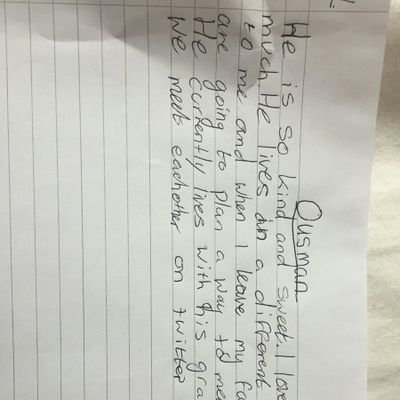 Ousman
He is so kind and sweet. I love
much He lives in a different
to me and when I leave my fa
are going to plan a way to me
He currently lives with his gra
We meet eachother on twitter